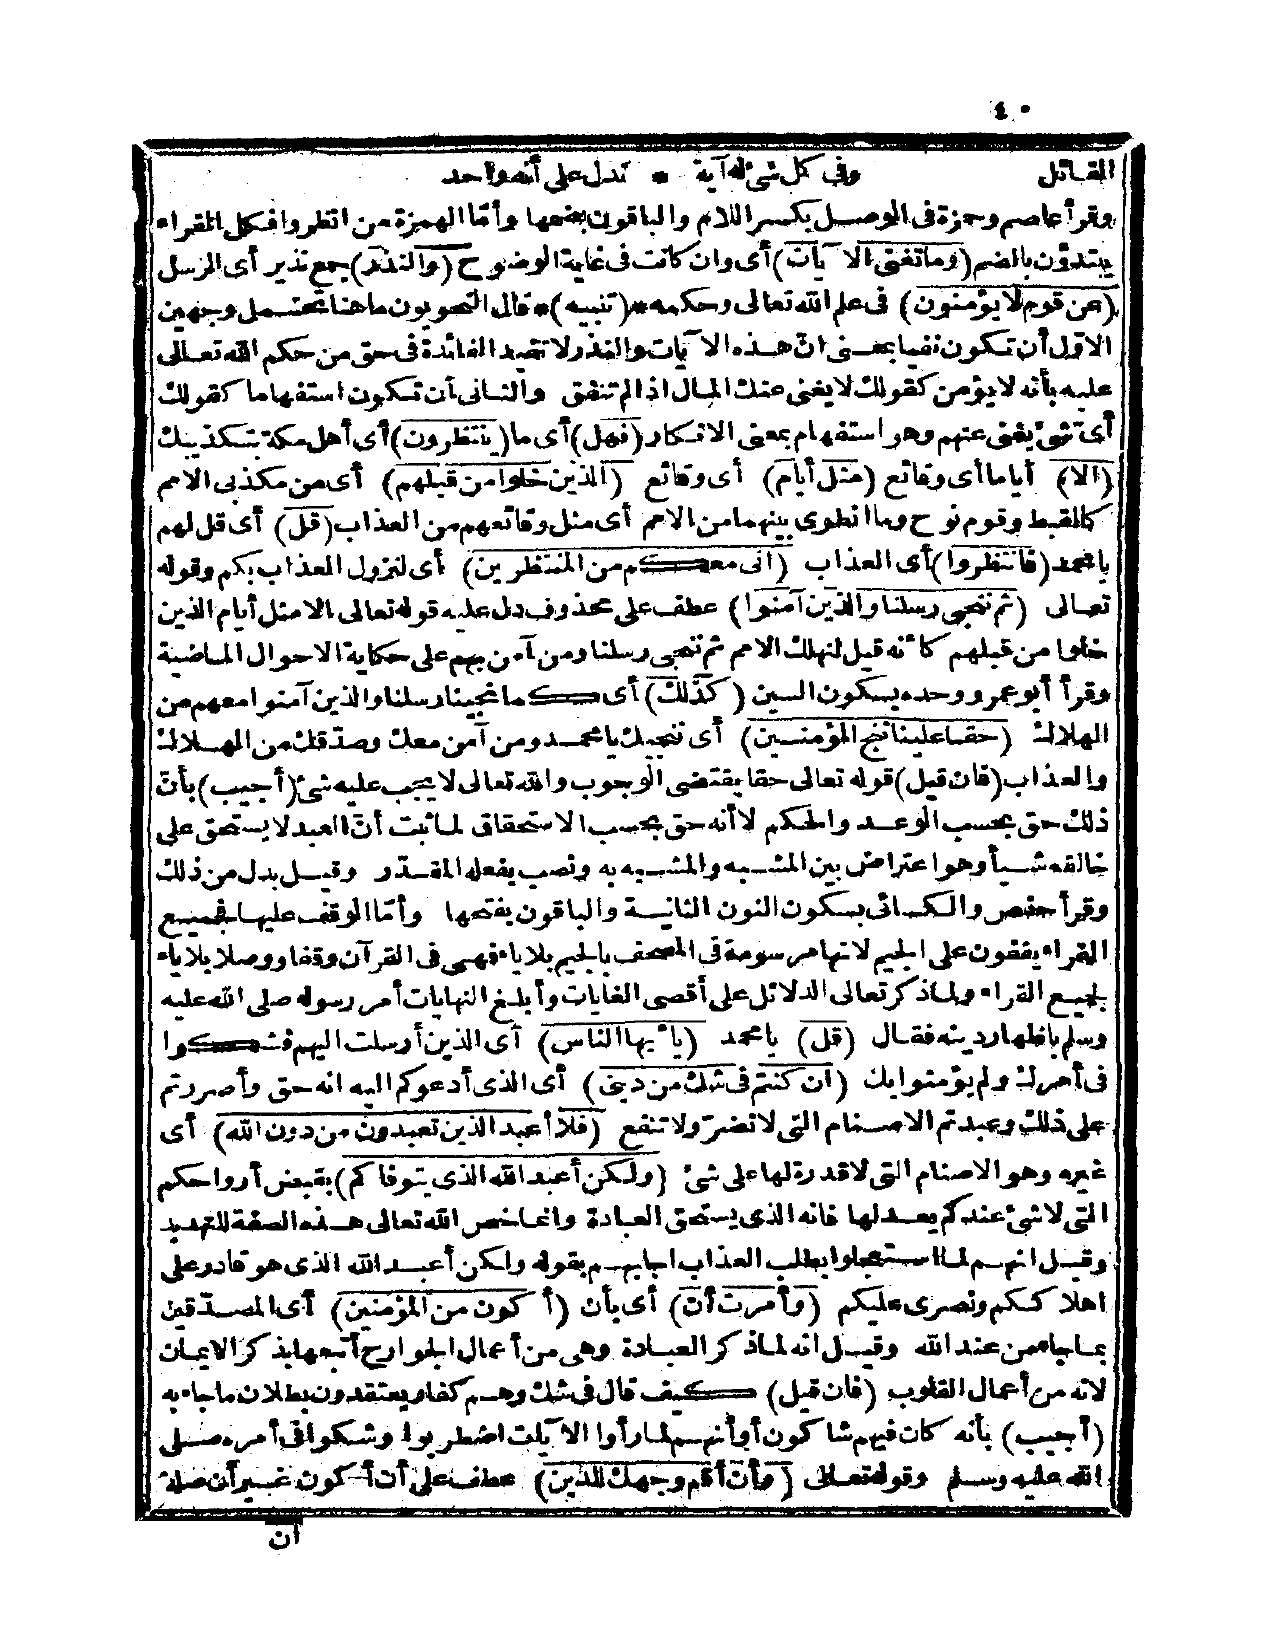 ٤٠
القائل وفي كل شئ له آية * تدل على أنه واحد
وقرأ عاصم وحمزة في الوصل بكسر اللام والباقون بضمها وأما الهمزة من انظروا فكل القراء
يبتدؤن بالضم (وما تغنى الآيات) أى وان كانت فى غاية الوضوح (والنذر) جمع نذير أى الرسل
(عن قوم لا يؤمنون) فى علم الله تعالى وحكمه * (تنبيه) * قال النحويون ما هنا تحتمل وجهين
الاول أن تكون نفيا بمعنى ان هذه الآيات والنذر لا تفيد الفائدة فى حق من حكم الله تعالى
عليه بأنه لا يؤمن كقولك لا يغنى عنك المال اذا لم تنفق والثانى أن تكون استفهاما كقولك
أى شئ يغنى عنهم وهو استفهام بمعنى الانكار (فهل) أى ما (ينتظرون) أى أهل مكة بتكذيبك
(الا) أياما أى وقائع (مثل أيام) أى وقائع (الذين خلوا من قبلهم) أى من مكذبى الامم
كالقبط وقوم نوح وما انطوى بينهما من الامم أى مثل وقائعهم من العذاب (قل) أى قل لهم
يا محمد (فانتظروا) أى العذاب (انى معكم من المنتظرين) أى لنزول العذاب بكم وقوله
تعالى (ثم ننجى رسلنا والذين آمنوا) عطف على محذوف دل عليه قوله تعالى الا مثل أيام الذين
خلوا من قبلهم كأنه قيل لنهلك الامم ثم ننجى رسلنا ومن آمن بهم على حكاية الاحوال الماضية
وقرأ أبو عمرو وحده بسكون السين (كذلك) أى كما نجينا رسلنا والذين آمنوا معهم من
الهلاك (حقا علينا ننج المؤمنين) أى ننجيك يا محمد ومن آمن معك وصدقك من الهلاك
والعذاب (فان قيل) قوله تعالى حقا يقتضى الوجوب والله تعالى لا يجب عليه شئ (أجيب) بأن
ذلك حق بحسب الوعد والحكم لا أنه حق بحسب الاستحقاق لما ثبت أن العبد لا يستحق على
خالقه شيأ وهو اعتراض بين المشبه والمشبه به ونصب بفعله المقدر وقيل بدل من ذلك
وقرأ حفص والكسائى بسكون النون الثانية والباقون بفتحها وأما الوقف عليها فجميع
القراء يقفون على الجيم لانها مرسومة فى المصحف بالجيم بلا ياء فهى فى القرآن وقفا ووصلا بلا ياء
لجميع القراء ولما ذكر تعالى الدلائل على أقصى الغايات وأبلغ النهايات أمر رسوله صلى الله عليه
وسلم باظهار دينه فقال (قل) يا محمد (يا أيها الناس) أى الذين أرسلت اليهم فشكوا
فى أمرك ولم يؤمنوا بك (ان كنتم فى شك من دينى) أى الذى أدعوكم اليه انه حق وأصررتم
على ذلك وعبدتم الاصنام التى لا تضر ولا تنفع (فلا أعبد الذين تعبدون من دون الله) أى
غيره وهو الاصنام التى لا قدرة لها على شئ (ولكن أعبد الله الذى يتوفاكم) بقبض أرواحكم
التى لا شئ عندكم يعدلها فانه الذى يستحق العبادة وانما خص الله تعالى هذه الصفة للتهديد
وقيل انهم لما استعجلوا بطلب العذاب اجابهم بقوله ولكن أعبد الله الذى هو قادر على
اهلاككم ونصرى عليكم (وأمرت أن) أى بأن (أكون من المؤمنين) أى المصدقين
بما جاء من عند الله وقيل انه لما ذكر العبادة وهى من أعمال الجوارح أتبعها بذكر الايمان
لانه من أعمال القلوب (فان قيل) كيف قال فى شك وهم كفار يعتقدون بطلان ما جاء به
(أجيب) بأنه كان فيهم شاكون أو أنهم لما رأوا الآيات اضطربوا وشكوا فى أمره صلى
الله عليه وسلم وقوله تعالى (وأن أقم وجهك للدين) عطف على أن أكون غير أن صلة
أن